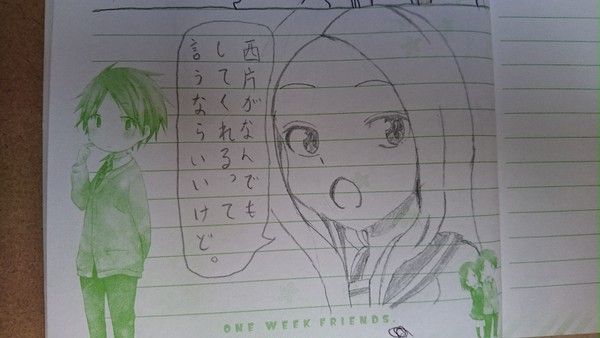 西片がなんでも
してくれるって
言うならいいけど。
ONE WEEK FRIENDS.